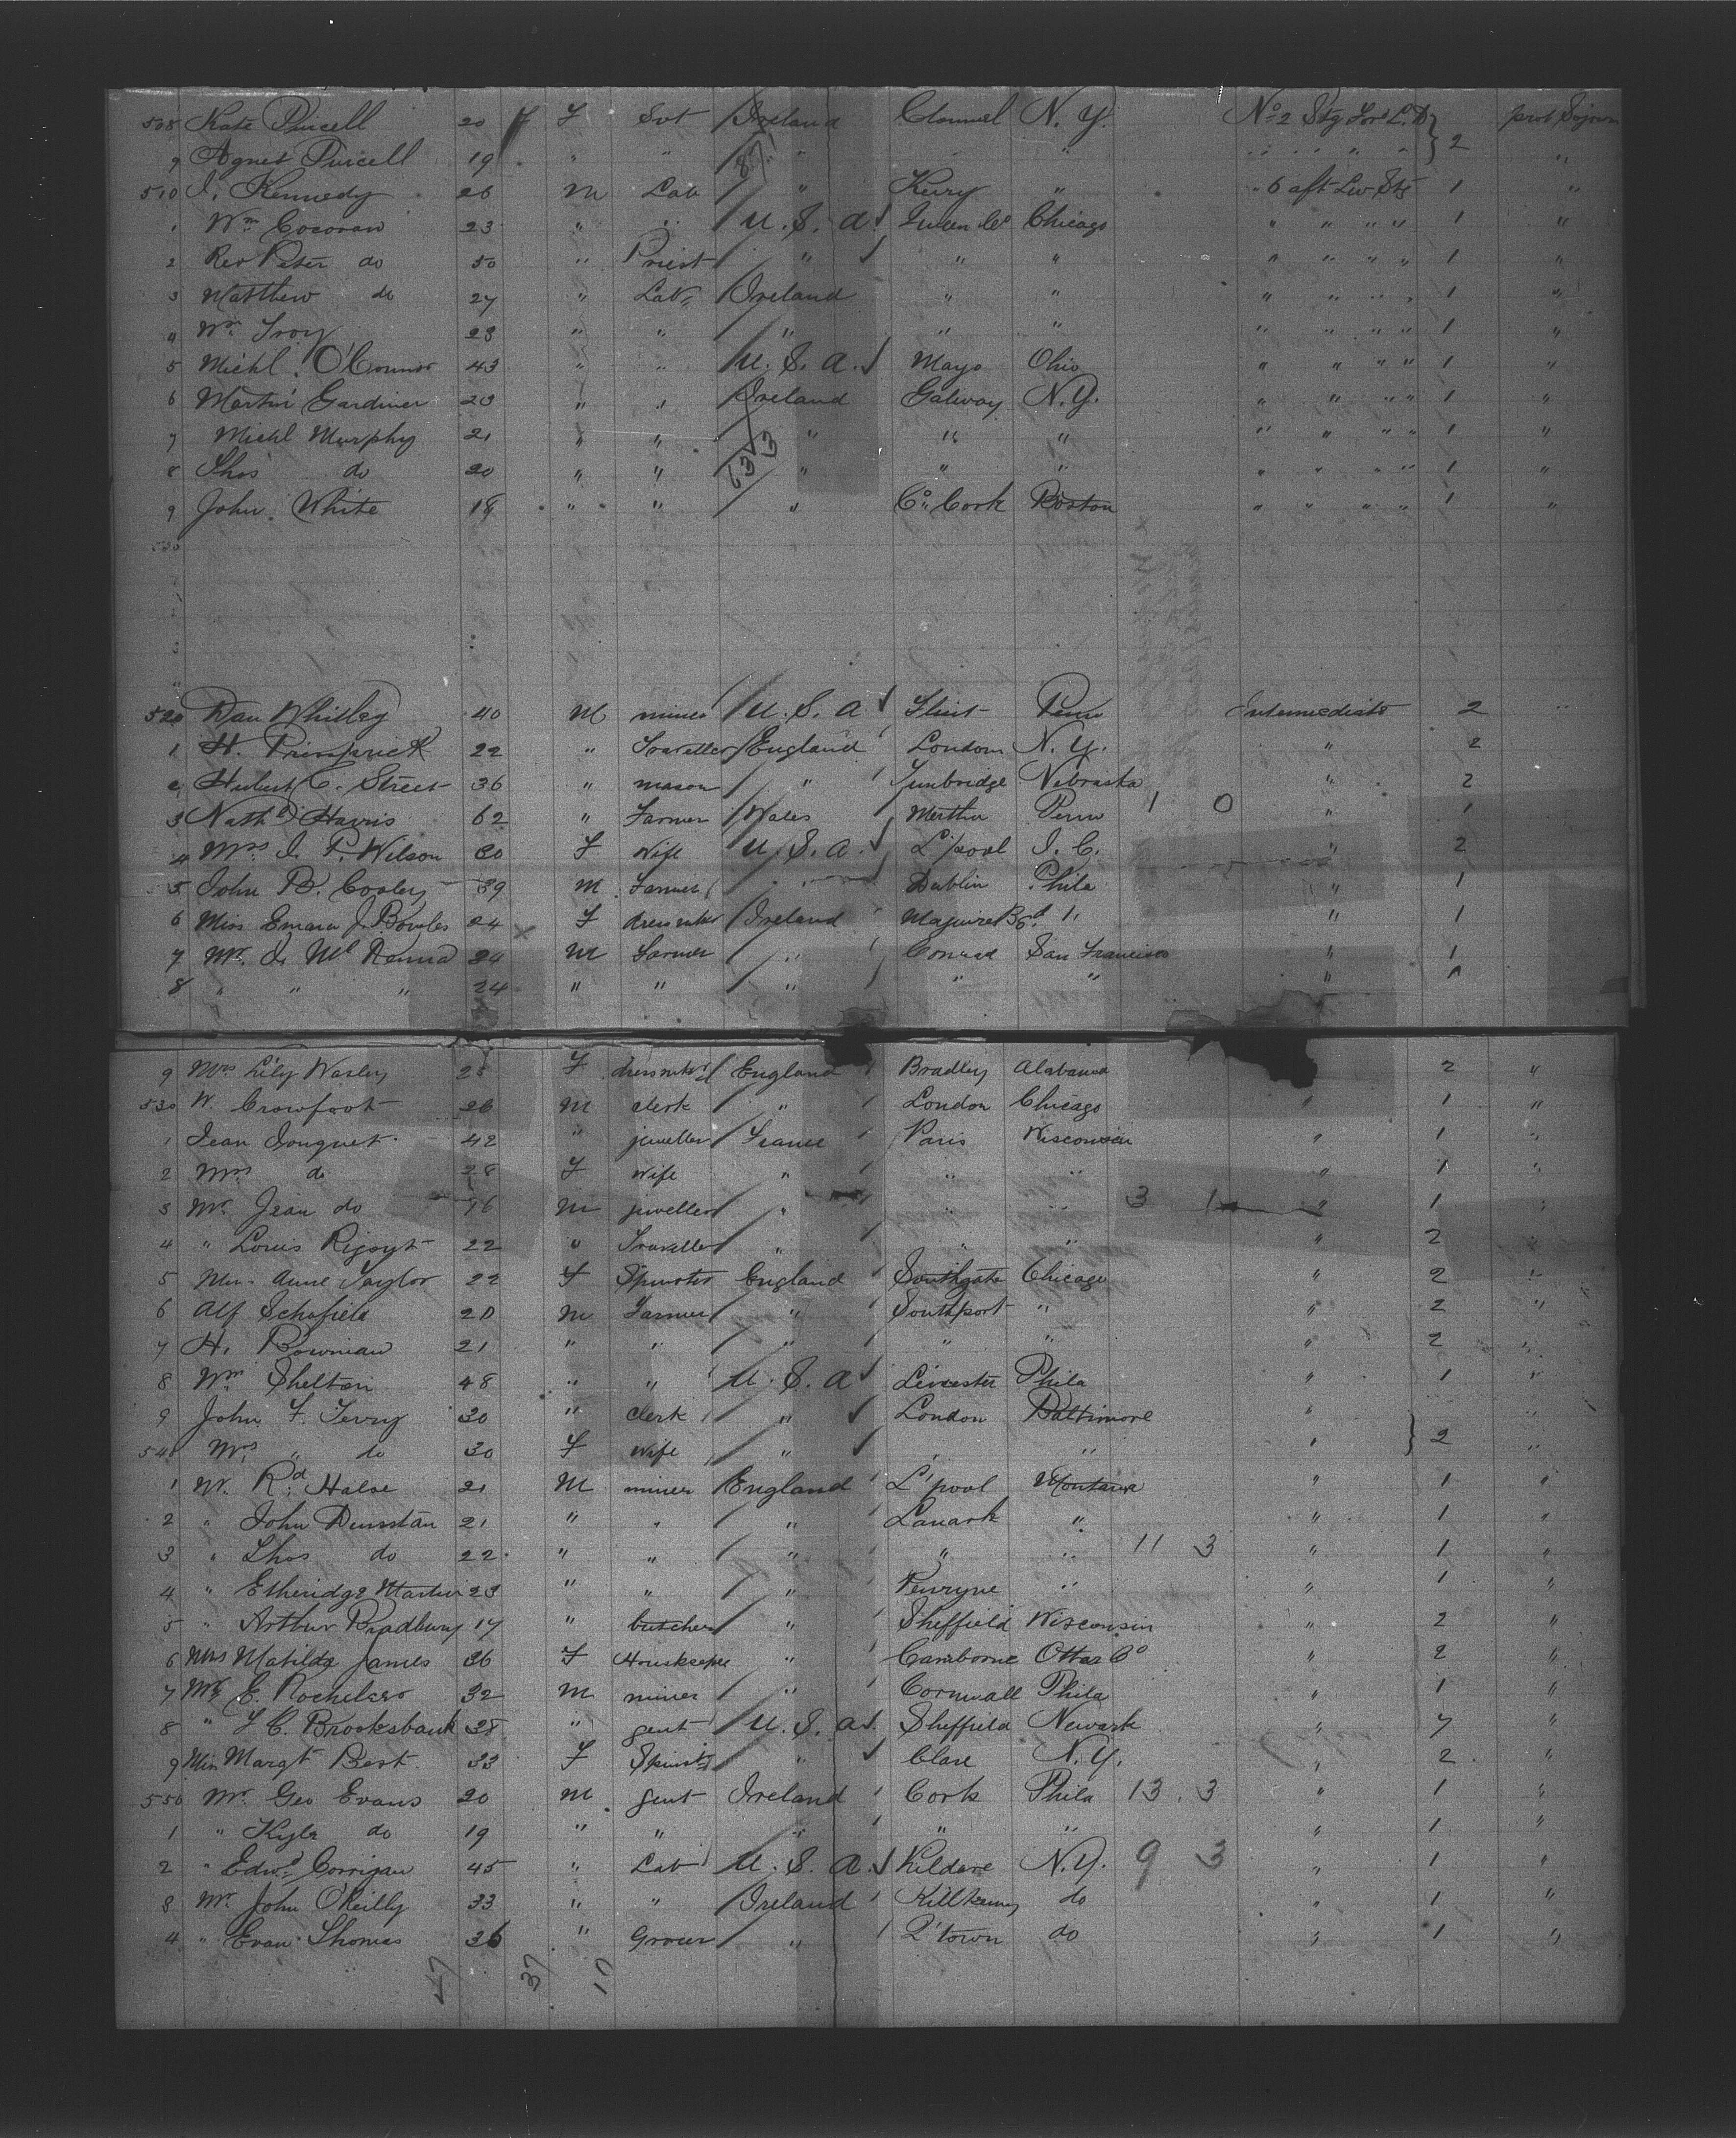 508 Kate Purcell 20 F Svt Ireland Clonmel N. Y. No 2 Stg Fore L. D. } 2 prot Sojourn
9 Agnes Purcell 19 " " " " " " "
510 J. Kennedy 26 M Lab " Kerry " " 6 aft Lw Stg 1 "
1 Wm Cocoran 23 " " U. S. A. Queen Co Chicago " " " " 1 "
2 Rev Peter do 50 " Priest " " " " " " " 1 "
3 Matthew do 27 " Lab Ireland " " " " " " 1 "
4 Wm Troy 23 " " " " " " " " " 1 "
5 Michl O'Connor 43 " " U. S. A. Mayo Ohio " " " " 1 "
6 Martin Gardiner 23 " " Ireland Galway N. Y. " " " " 1 "
7 Michl Murphy 21 " " " " " " " " " 1 "
8 Thos do 20 " " " " " " " " " 1 "
9 John White 18 " " " Co Cork Boston " " " " 1 "
520 Dan Whitley 40 M miner U. S. A Flint Penn Intermediate 2 "
1 H. 22 " Traveller England London N. Y. " 2
2 Hubert C. Street 36 " mason " Tunbridge Nebraska " 2
3 Nathl Harris 62 " Farmer Wales Merthr Penn 1 0 " 1
4 Mrs J. P. Wilson 30 F Wife U. S. A. L'pool " 2
5 John B. Cooley 39 M Farmer " Dublin Phila " 1
6 Miss Emma J. Bowles 24 F dressmkr Ireland " " 1
7 Mr. J. McKenna 24 M Farmer " San Francisco " 1
8 " " " 24 " " " " " " 1
9 Mrs Lily Wasley F dressmkr England Bradley Alabama 2 "
530 W. Crowfoot 26 M clerk " London Chicago " 1 "
1 Jean Jouquet 42 " jeweller France Paris Wisconsin " 1 "
2 Mrs do 28 F Wife " " " " 1 "
3 Mr. Jean do 16 M jeweller " " " 3 1 " 1 "
4 " Louis 22 " Traveller " " " " 2 "
5 Miss Anne Taylor 22 F Spinster England Southgate Chicago " 2 "
6 Alf Schofield 20 M Farmer " Southport " " 2 "
7 H. Bowman 21 " " " " " " 2 "
8 Wm Shelton 48 " " U. S. A Leicester Phila " 1 "
9 John F. Terry 30 " clerk " London Baltimore " } 2 "
540 Mrs " do 30 F Wife " " " " "
1 Mr. Rd. Halse 21 M miner England L'pool Montana " 1 "
2 " John Dunstan 21 " " " Lanark " " 1 "
3 " Thos do 22 " " " " " 11 3 " 1 "
4 " Etheridge Martin 23 " " " Penryne " " 1 "
5 " Arthur Bradbury 17 " butcher " Sheffield Wisconsin " 2 "
6 Mrs Matilda James 36 F Housekeeper " Camborne " 2 "
7 Mr E. 32 M miner " Cornwall Phila " 1 "
8 " F C. Brooksbank 38 " gent U. S. A. Sheffield Newark " 7 "
9 Miss Margt Best 33 F Spinster " Clare N. Y. " 2 "
550 Mr. Geo Evans 20 M gent Ireland Cork Phila 13 3 " 1 "
1 " Kyle do 19 " " " " " " 1 "
2 " Edwd Corrigan 45 " Lab U. S. A. Kildare N. Y. 9 3 " 1 "
3 Mr. John O'Reilly 33 " " Ireland Killkenny do " 1 "
4 " Evan Thomas 36 " Grocer " Q'town do " 1 "
47 37 10